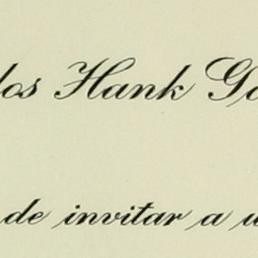 los Hank Go
de invitar a u